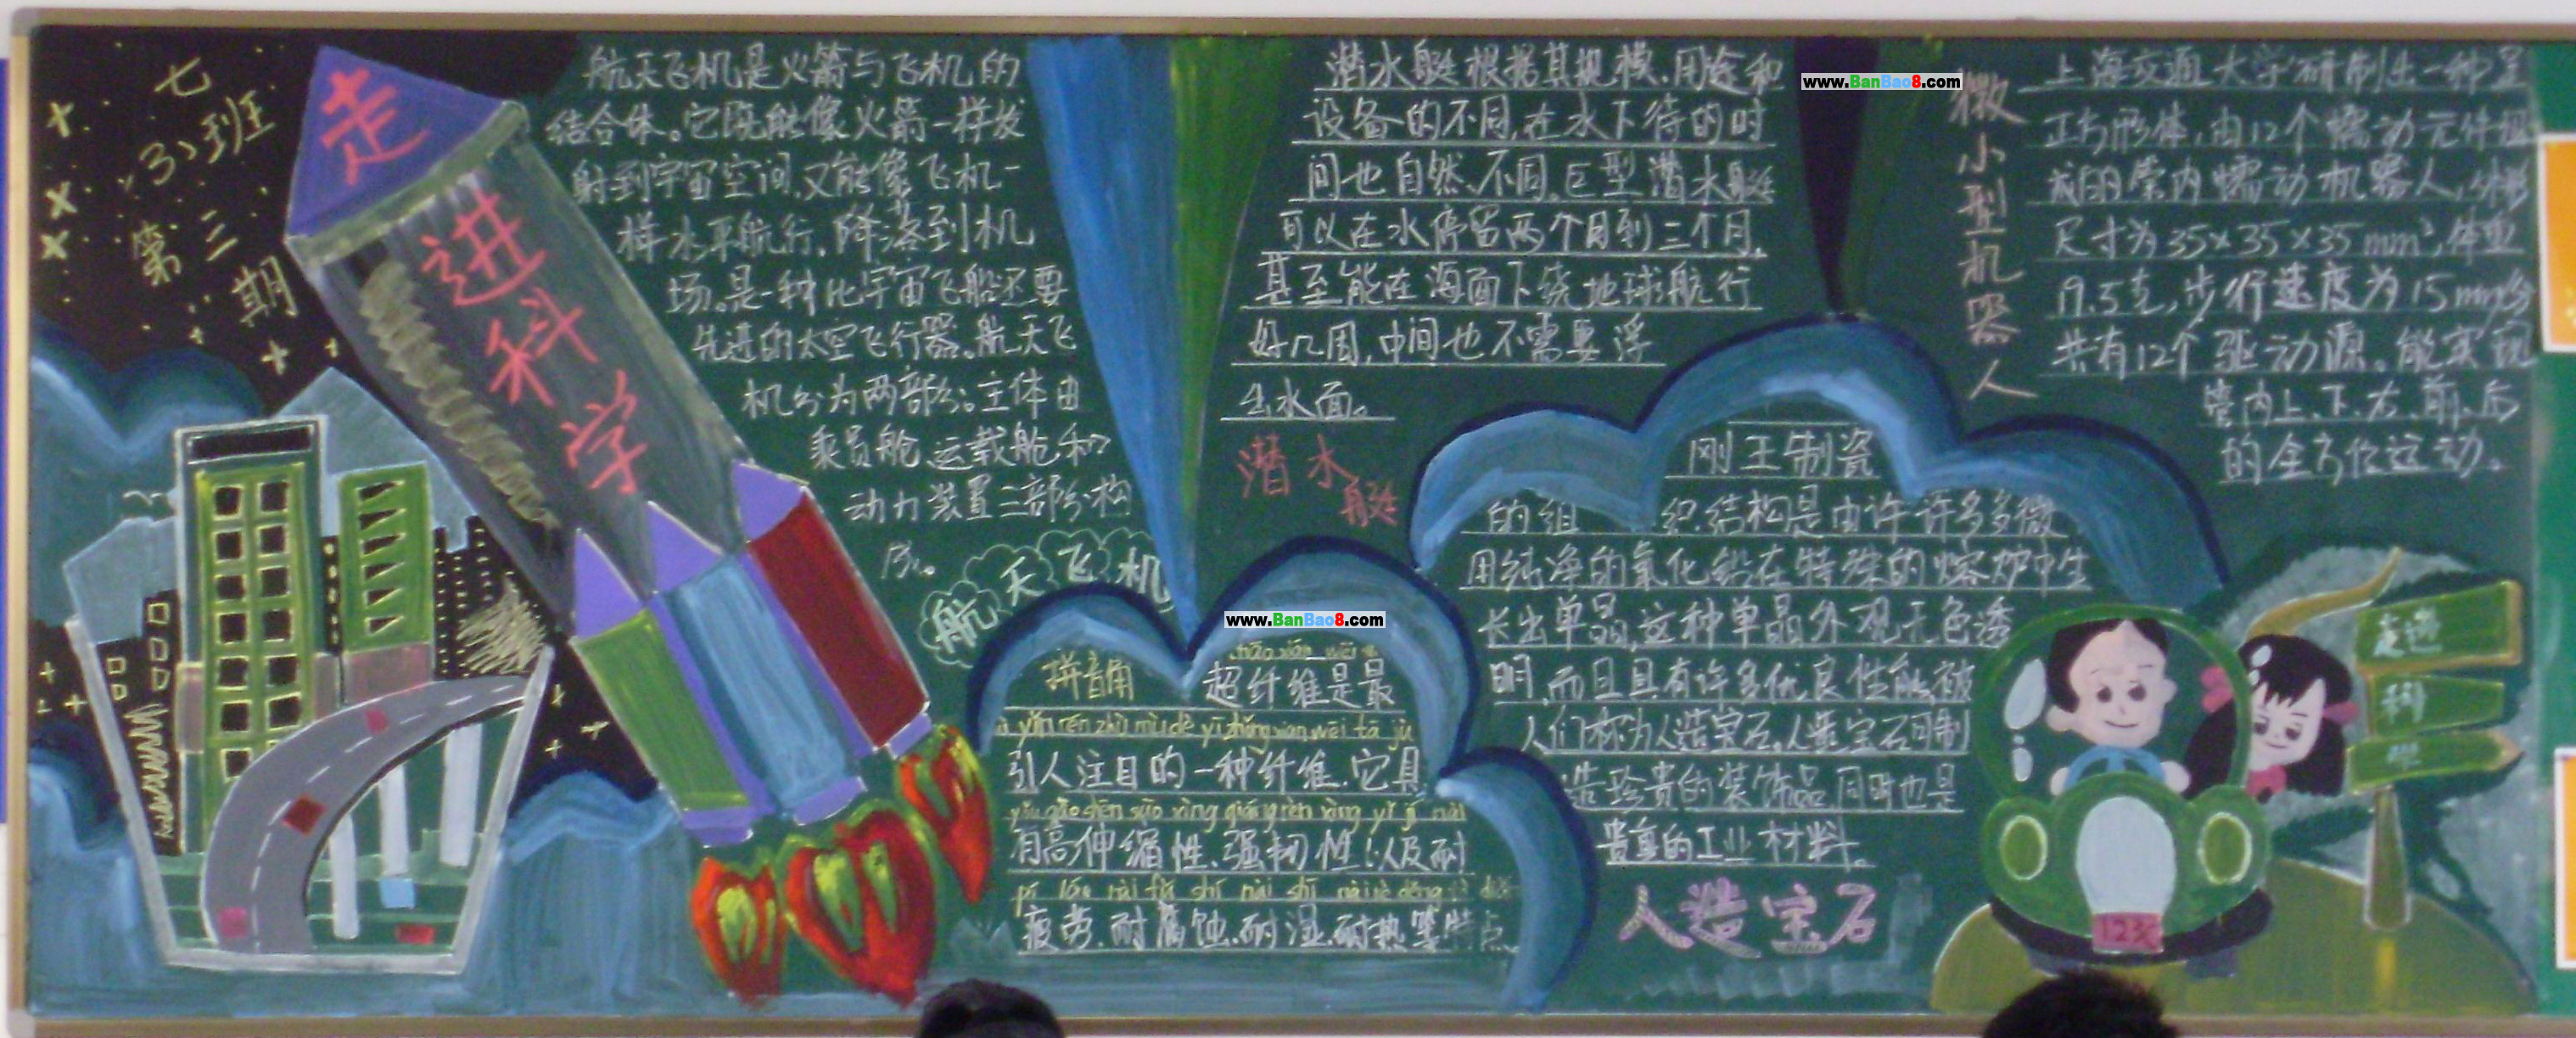 七
(3)班
第三
期
走
进
科
学
航天飞机是火箭与飞机的
结合体。它既能像火箭一样发
射到宇宙空间,又能像飞机一
样水平航行,降落到机
场。是一种比宇宙飞船还要
先进的太空飞行器。航天飞
机分为两部分。主体由
乘员舱、运载舱和
动力装置三部分构
成。
航天飞机
潜水艇根据其规模、用途和
设备的不同,在水下待的时
间也自然不同。巨型潜水艇
可以在水停留两个月到三个月,
甚至能在海面下绕地球航行
好几周,中间也不需要浮
出水面。
潜水艇
www.BanBao8.com
拼音角
超纤维是最
引人注目的一种纤维.它具
有高伸缩性、强韧性以及耐
疲劳.耐腐蚀.耐湿.耐热等特点
www.BanBao8.com
微小型机器人
上海交通大学研制出一种
正方形体,由12个蠕动元件组
成的管内蠕动机器人,外形
尺寸为35×35×35mm³,体重
19.5克,步行速度为15mm/分
共有12个驱动源。能实现
管内上、下、左、前、后
的全方位运动。
刚玉制瓷
的组织结构是由许许多多微
用纯净的氧化铝在特殊的熔炉中生
长出单晶,这种单晶外观无色透
明,而且具有许多优良性能被
人们称为人造宝石。人造宝石可制
造珍贵的装饰品,同时也是
贵重的工业材料。
人造宝石
走进
科
学